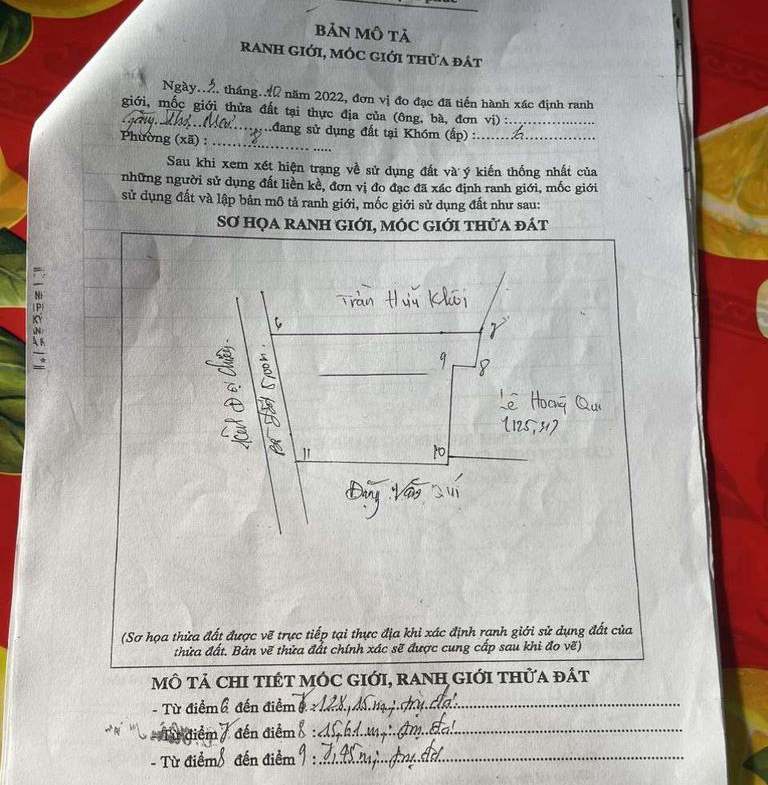 BẢN MÔ TẢ
RANH GIỚI, MỐC GIỚI THỬA ĐẤT
Ngày..3.. tháng..10 năm 2022, đơn vị đo đạc đã tiến hành xác định ranh
giới, mốc giới thửa đất tại thực địa của (ông, bà, đơn vị) :..................
đang sử dụng đất tại Khóm (ấp) :.......6...............
Phường (xã) : ........................ .....
Sau khi xem xét hiện trạng về sử dụng đất và ý kiến thống nhất của
những người sử dụng đất liền kề, đơn vị đo đạc đã xác định ranh giới, mốc giới
sử dụng đất và lập bản mô tả ranh giới, mốc giới sử dụng đất như sau:
SƠ HỌA RANH GIỚI, MỐC GIỚI THỬA ĐẤT
Trần Hữu Khôi
6
7
9
8
Kênh Đội Chiêu.
5,00m.
Lê Hoàng Qui
1125,
11
10
Đặng Văn Quí
(Sơ họa thửa đất được vẽ trực tiếp tại thực địa khi xác định ranh giới sử dụng đất của
thửa đất. Bản vẽ thửa đất chính xác sẽ được cung cấp sau khi đo vẽ)
MÔ TẢ CHI TIẾT MỐC GIỚI, RANH GIỚI THỬA ĐẤT
- Từ điểm 6 đến điểm 7 : 128,15m; trụ đá.
điểm 7 đến điểm 8 : 15,61 m; trụ đá
- Từ điểm 8 đến điểm 9 : 7,95 m; trụ đá